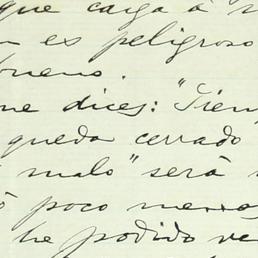 que caiga á
es peligroso
bueno.
me dices: "Tiem
queda cerrado
malo" será
poco menos
he podido ve